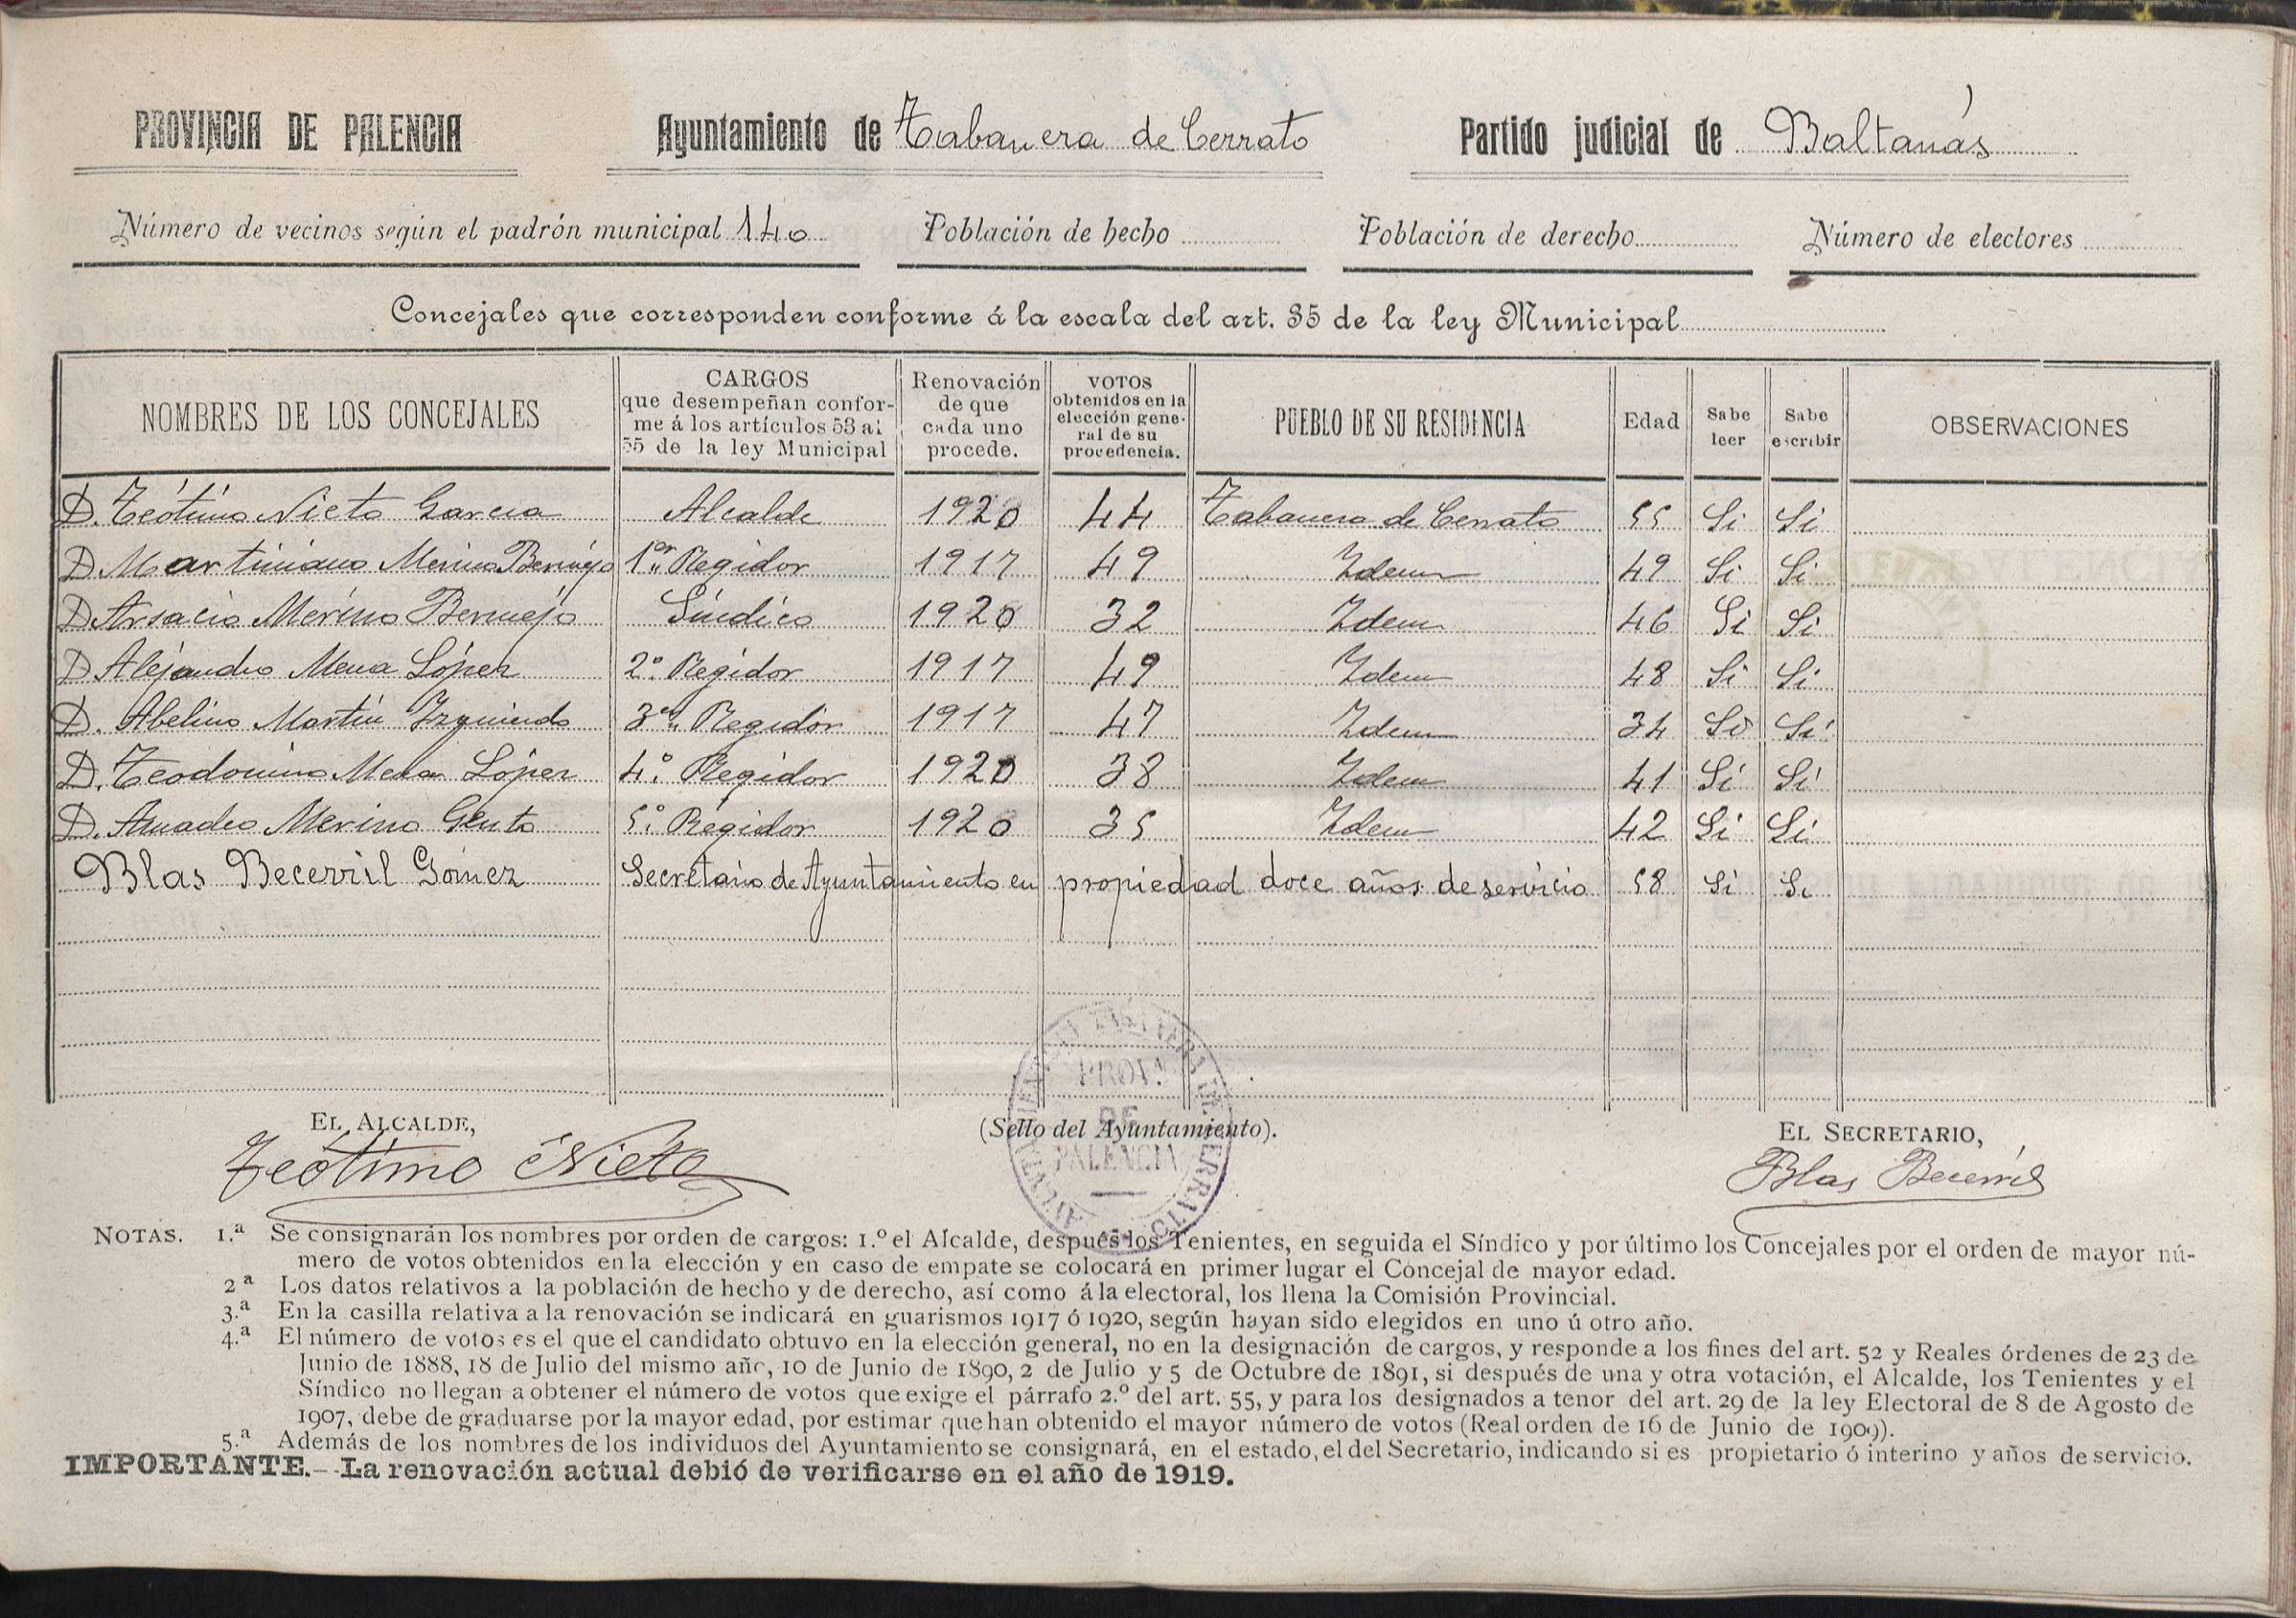 PROVINCIA DE PALENCIA Ayuntamiento de Tabanera de Cerrato Partido judicial de Baltanás
Número de vecinos según el padrón municipal 140 Población de hecho Población de derecho Número de electores
Concejales que corresponden conforme á la escala del art. 35 de la ley Municipal
NOMBRES DE LOS CONCEJALES
CARGOS
que desempeñan confor-
me á los artículos 53 al
55 de la ley Municipal
Renovación
de que
cada uno
procede.
VOTOS
obtenidos en la
elección gene-
ral de su
procedencia.
PUEBLO DE SU RESIDENCIA
Edad
Sabe
leer
Sabe
escribir
OBSERVACIONES
D. Teótimo Nieto Garcia Alcalde 1920 44 Tabanera de Cerrato 55 Si Si
D Martiniano Merino Bermejo 1er Regidor 1917 49 Idem 49 Si Si
D Arsacio Merino Bermejo Síndico 1920 32 Idem 46 Si Si
D Alejandro Mena López 2º Regidor 1917 49 Idem 48 Si Si
D. Abelino Martín Izquierdo 3er Regidor 1917 47 Idem 34 Si Si
D. Teodomiro Mena López 4º Regidor 1920 38 Idem 41 Si Si
D. Amadeo Merino Gento 5º Regidor 1920 35 Idem 42 Si Si
Blas Becerril Gómez Secretario de Ayuntamiento en propiedad doce años de servicio 58 Si Si
EL ALCALDE,
Teótimo Nieto
(Sello del Ayuntamiento).
PROVª
DE
PALENCIA
EL SECRETARIO,
Blas Becerril
NOTAS. 1.ª Se consignarán los nombres por orden de cargos: 1.º el Alcalde, después los Tenientes, en seguida el Síndico y por último los Concejales por el orden de mayor nú-
mero de votos obtenidos en la elección y en caso de empate se colocará en primer lugar el Concejal de mayor edad.
2ª Los datos relativos a la población de hecho y de derecho, así como á la electoral, los llena la Comisión Provincial.
3.ª En la casilla relativa a la renovación se indicará en guarismos 1917 ó 1920, según hayan sido elegidos en uno ú otro año.
4.ª El número de votos es el que el candidato obtuvo en la elección general, no en la designación de cargos, y responde a los fines del art. 52 y Reales órdenes de 23 de
Junio de 1888, 18 de Julio del mismo año, 10 de Junio de 1890, 2 de Julio y 5 de Octubre de 1891, si después de una y otra votación, el Alcalde, los Tenientes y el
Síndico no llegan a obtener el número de votos que exige el párrafo 2.º del art. 55, y para los designados a tenor del art. 29 de la ley Electoral de 8 de Agosto de
1907, debe de graduarse por la mayor edad, por estimar que han obtenido el mayor número de votos (Real orden de 16 de Junio de 1909).
5.ª Además de los nombres de los individuos del Ayuntamiento se consignará, en el estado, el del Secretario, indicando si es propietario ó interino y años de servicio.
IMPORTANTE.-La renovación actual debió de verificarse en el año de 1919.